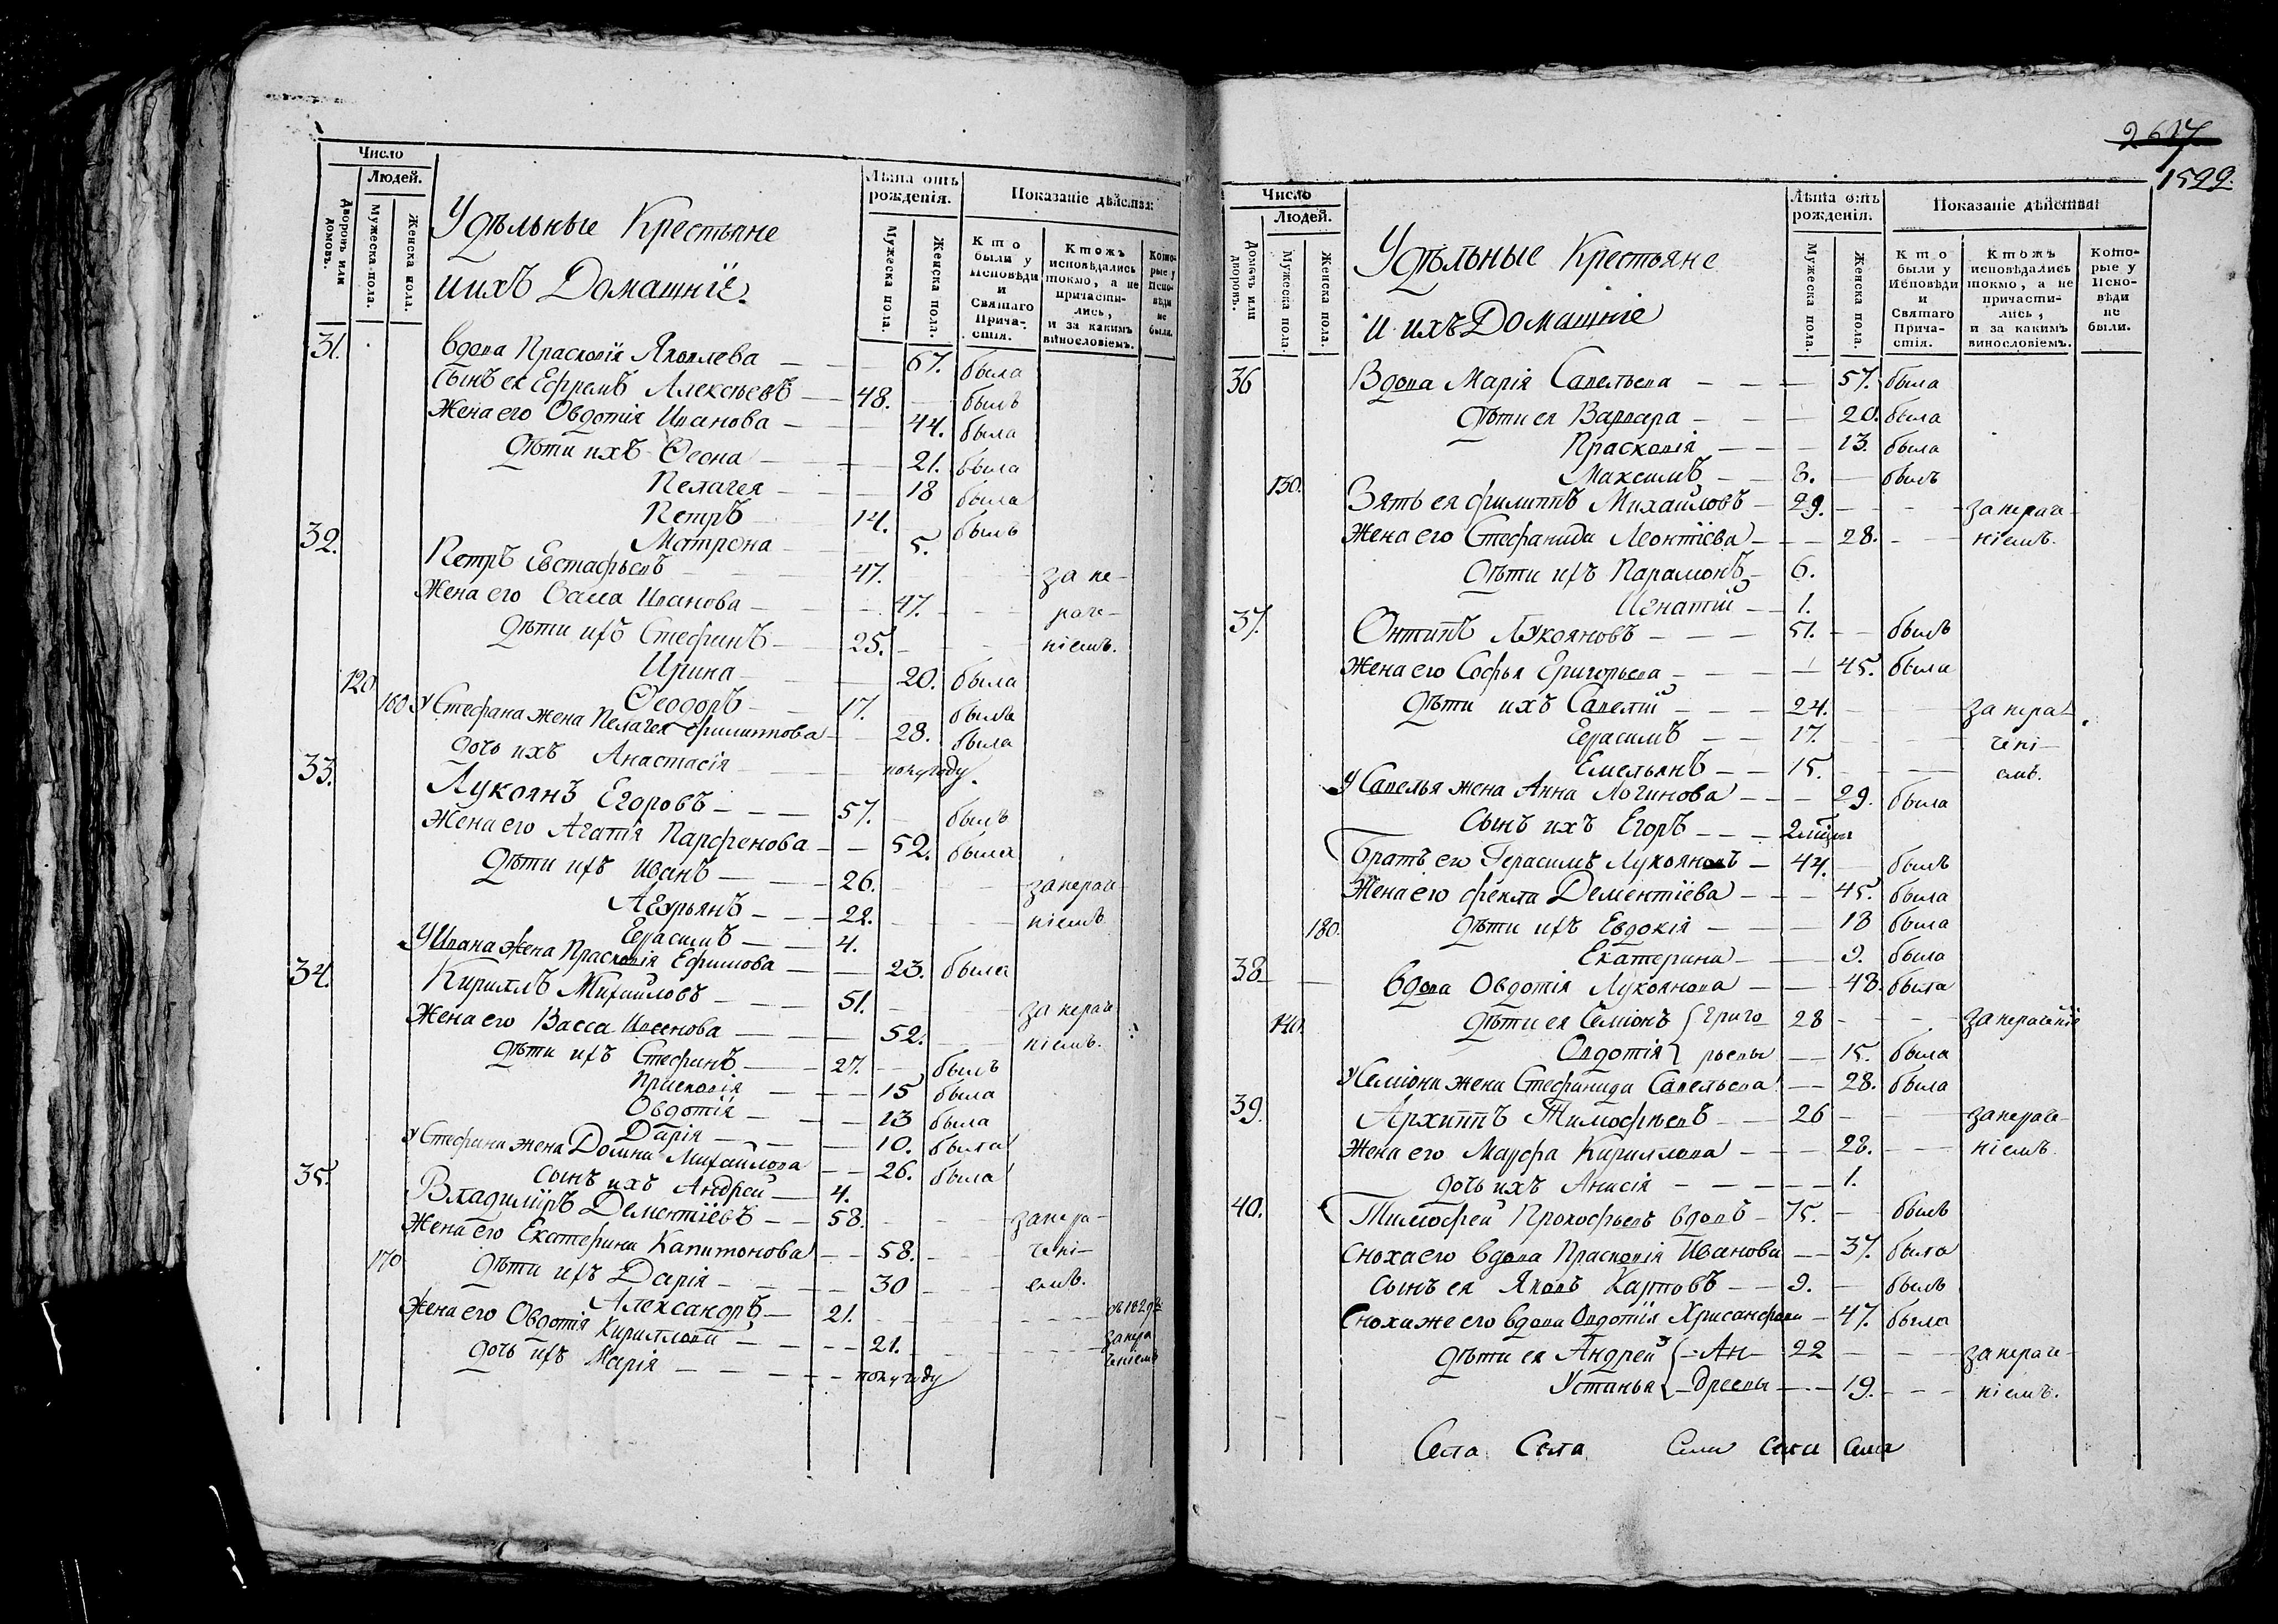 Число
Людей.
Дворовъ или домовъ.
Мужеска пола.
Женска пола.
Удѣльные Крестьяне
и ихъ Домашнїе.
Лѣта отъ рожденія.
Мужеска пола.
Женска пола.
Показаніе дѣйствія
Кто были у Исповѣди и Святаго Прича-стія.
Ктожъ исповѣдались токмо, а не причасти-лись, и за какимъ винословіемъ.
Кото-рые у Испо-вѣди не были.
31. Вдова Прасковїя Яковлева — 67. была
Сынъ ея Ефремъ Алексѣевъ — 48. — былъ
Жена его Овдотїя Иванова — 44. была
Дѣти ихъ Ѳеона — 21. была
Пелагея — 18 была
Петръ 14. былъ
Матрона — 5.
32. Петръ Евстафьевъ — 47. за не-
Жена его Васса Иванова — 47. — раче-
Дѣти ихъ Стефанъ — 25. — нїемъ.
Ирина — 20. была
120 Ѳеодоръ — 17. былъ
160 У Стефана жена Пелагея Филиппова — 28. была
дочь ихъ Анастасїя — полугоду.
33. Лукоянъ Егоровъ — 57. былъ
Жена его Агатїя Парфенова — 52. была
Дѣти ихъ Иванъ — 26. — за нераче-
Агурьянъ — 22. — нїемъ
Герасимъ — 4.
У Ивана жена Прасковїя Ефимова — 23. была
34. Кириллъ Михайловъ — 51. — за нераче-
Жена его Васса — 52. — нїемъ.
Дѣти ихъ Стефанъ — 27. — былъ
Прасковїя — 15 была
Овдотїя — 13 была
Дарїя — 10. была
У Стефана жена Домна Михайлова — 26. была
сынъ ихъ Андрей — 4.
35. Владимїръ Дементїевъ — 58. — за нера-
Жена его Екатерина Капитонова — 58. — чені-
170 Дѣти ихъ Дарїя — 30 — емъ.
Александръ — 21. — съ 1829
Жена его Овдотїя Кириллова — 21. — за нера
ченіемъ
дочь ихъ Марїя — полугоду
2617
1599.
Число
Людей.
Домовъ или дворовъ.
Мужеска пола.
Женска пола.
Удѣльные Крестьяне
и ихъ Домашнїе
Лѣта отъ рожденія.
Мужеска пола.
Женска пола.
Показаніе дѣйствія
Кто были у Исповѣди и Святаго Прича-стія.
Ктожъ исповѣдались токмо, а не причасти-лись, и за какимъ винословіемъ.
Кото-рые у Испо-вѣди не были.
36 Вдова Марія Савельева — 57. была
Дѣти ея Варвара — 20. была
Прасковїя — 13. была
Максимъ — 8. — былъ
130. Зять ея Филиппъ Михайловъ — 29. — за нераче-
Жена его Стефанида Леонтїева — 28. — нїемъ.
Дѣти ихъ Парамонъ — 6.
Игнатій — 1.
37. Онтипъ Лукояновъ — 51. — былъ
Жена его Софья Григорьева — 45. была
Дѣти ихъ Савелій — 24. — за нера-
Герасимъ — 17. — чені-
Емельянъ — 15. — емъ.
У Савелья жена Анна Логинова — 29. была
Сынъ ихъ Егоръ — 2 мѣсяц
Братъ его Герасимъ Лукояновъ — 44. былъ
Жена его Фекла Дементїева — 45. была
180. Дѣти ихъ Евдокія — 18 была
Екатерина — 9. была
38 Вдова Овдотія Лукоянова — 48. была
140. Дѣти ея Семіонъ { Григо 28 — за нераченіе
Овдотія } рьевы — 15. была
У Семіона жена Стефанида Савельева — 28. была
39. Архиппъ Тимофѣевъ — 26 — за нераче-
Жена его Марфа Кириллова — 28. — ніемъ.
дочь ихъ Анисія — 1.
40. Тимофей Прокофьевъ вдовъ — 75. — былъ
Сноха его вдова Прасковія Иванова — 37. была
Сынъ ея Яковъ Карповъ — 9. — былъ
Сноха же его вдова Овдотїя Хрисанфова — 47. была
Дѣти ея Андрей { — Ан — 22 — за нераче-
Устинья { — дреевы — 19. — ніемъ.
Села Села Села Села Села